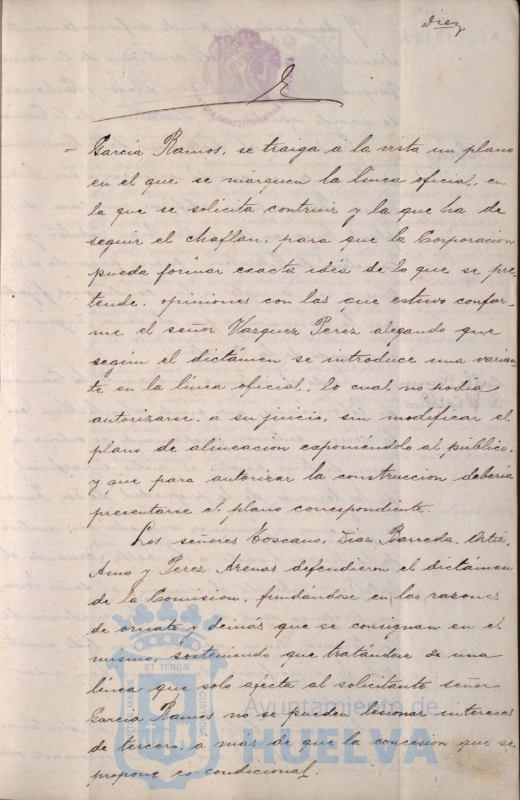 Diez
García Ramos, se traiga á la vista un plano
en el que se marquen la línea oficial, en
la que se solicita contruir y la que ha de
seguir el chaflan, para que la Corporacion
pueda formar exacta idéa de lo que se pre-
tende, opiniones con las que estuvo confor-
me el señor Vazquez Perez alegando que
según el dictámen se introduce una varian-
te en la línea oficial, lo cual no podia
autorizarse, á su juicio, sin modificar el
plano de alineacion exponiéndolo al público,
y que para autorizar la construccion debería
presentarse el plano correspondiente.
Los señores Toscano, Diaz Barreda, Ortiz,
Amo y Perez Arenas defendieron el dictámen
de la Comision, fundándose en las razones
de ornato y demás que se consignan en el
mismo, sosteniendo que tratándose de una
línea que solo afecta al solicitante señor
García Ramos no se pueden lesionar intereses
de tercero, á mas de que la concesion que se
propone es condicional.
ET TERRÆ
Ayuntamiento de
HUELVA